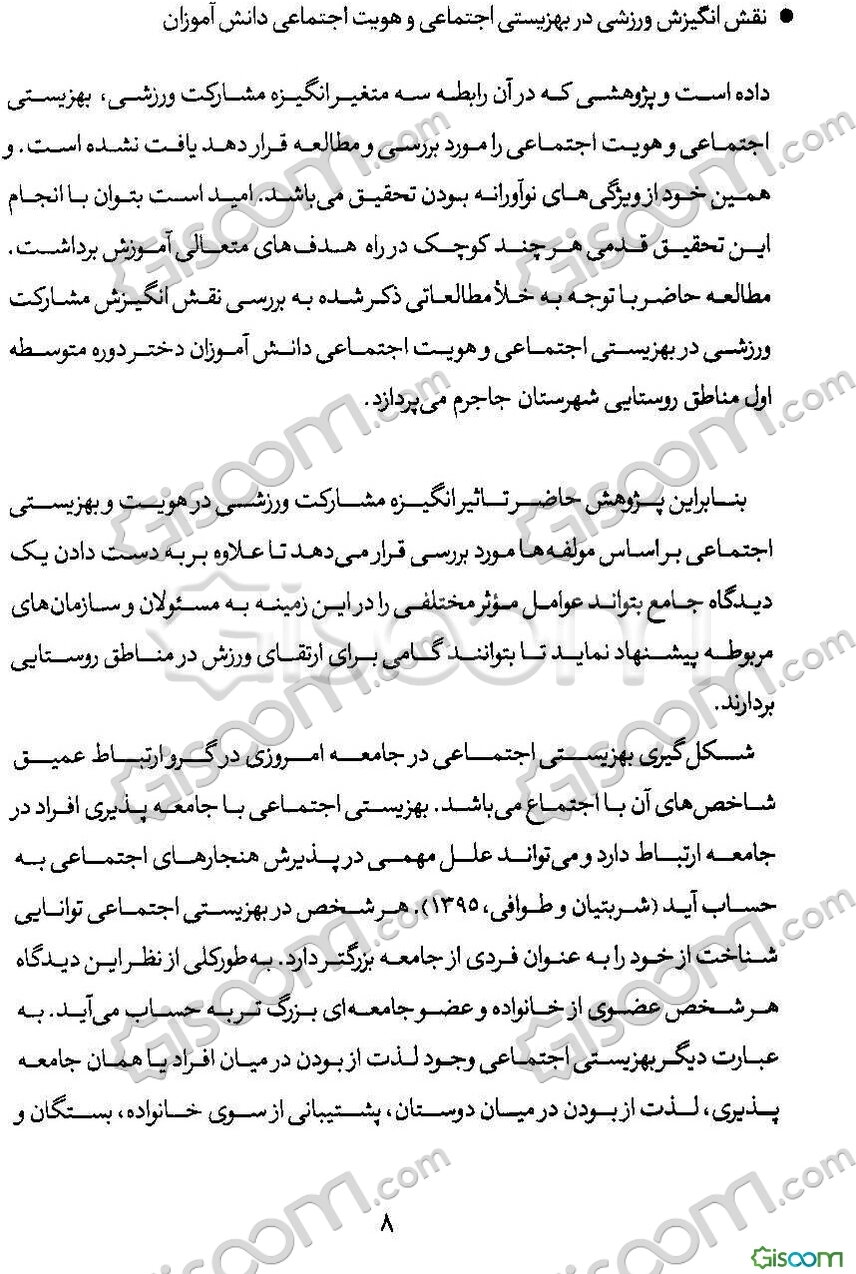 ● نقش انگیزش ورزشی در بهزیستی اجتماعی و هویت اجتماعی دانش آموزان
داده است و پژوهشی که در آن رابطه سه متغیر انگیزه مشارکت ورزشی، بهزیستی
اجتماعی و هویت اجتماعی را مورد بررسی و مطالعه قرار دهد یافت نشده است. و
همین خود از ویژگی‌های نوآورانه بودن تحقیق می‌باشد. امید است بتوان با انجام
این تحقیق قدمی هر چند کوچک در راه هدف‌های متعالی آموزش برداشت.
مطالعه حاضر با توجه به خلأ مطالعاتی ذکر شده به بررسی نقش انگیزش مشارکت
ورزشی در بهزیستی اجتماعی و هویت اجتماعی دانش آموزان دختر دوره متوسطه
اول مناطق روستایی شهرستان جاجرم می‌پردازد.
بنابراین پژوهش حاضر تاثیر انگیزه مشارکت ورزشی در هویت و بهزیستی
اجتماعی بر اساس مولفه‌ها مورد بررسی قرار می‌دهد تا علاوه بر به دست دادن یک
دیدگاه جامع بتواند عوامل مؤثر مختلفی را در این زمینه به مسئولان و سازمان‌های
مربوطه پیشنهاد نماید تا بتوانند گامی برای ارتقای ورزش در مناطق روستایی
بردارند.
شکل‌گیری بهزیستی اجتماعی در جامعه امروزی در گرو ارتباط عمیق
شاخص‌های آن با اجتماع می‌باشد. بهزیستی اجتماعی با جامعه پذیری افراد در
جامعه ارتباط دارد و می‌تواند علل مهمی در پذیرش هنجارهای اجتماعی به
حساب آید (شربتیان و طوافی، ۱۳۹۵). هر شخص در بهزیستی اجتماعی توانایی
شناخت از خود را به عنوان فردی از جامعه بزرگتر دارد. به‌طورکلی از نظر این دیدگاه
هر شخص عضوی از خانواده و عضو جامعه‌ای بزرگ تر به حساب می‌آید. به
عبارت دیگر بهزیستی اجتماعی وجود لذت از بودن در میان افراد یا همان جامعه
پذیری، لذت از بودن در میان دوستان، پشتیبانی از سوی خانواده، بستگان و
۸
Gisoom